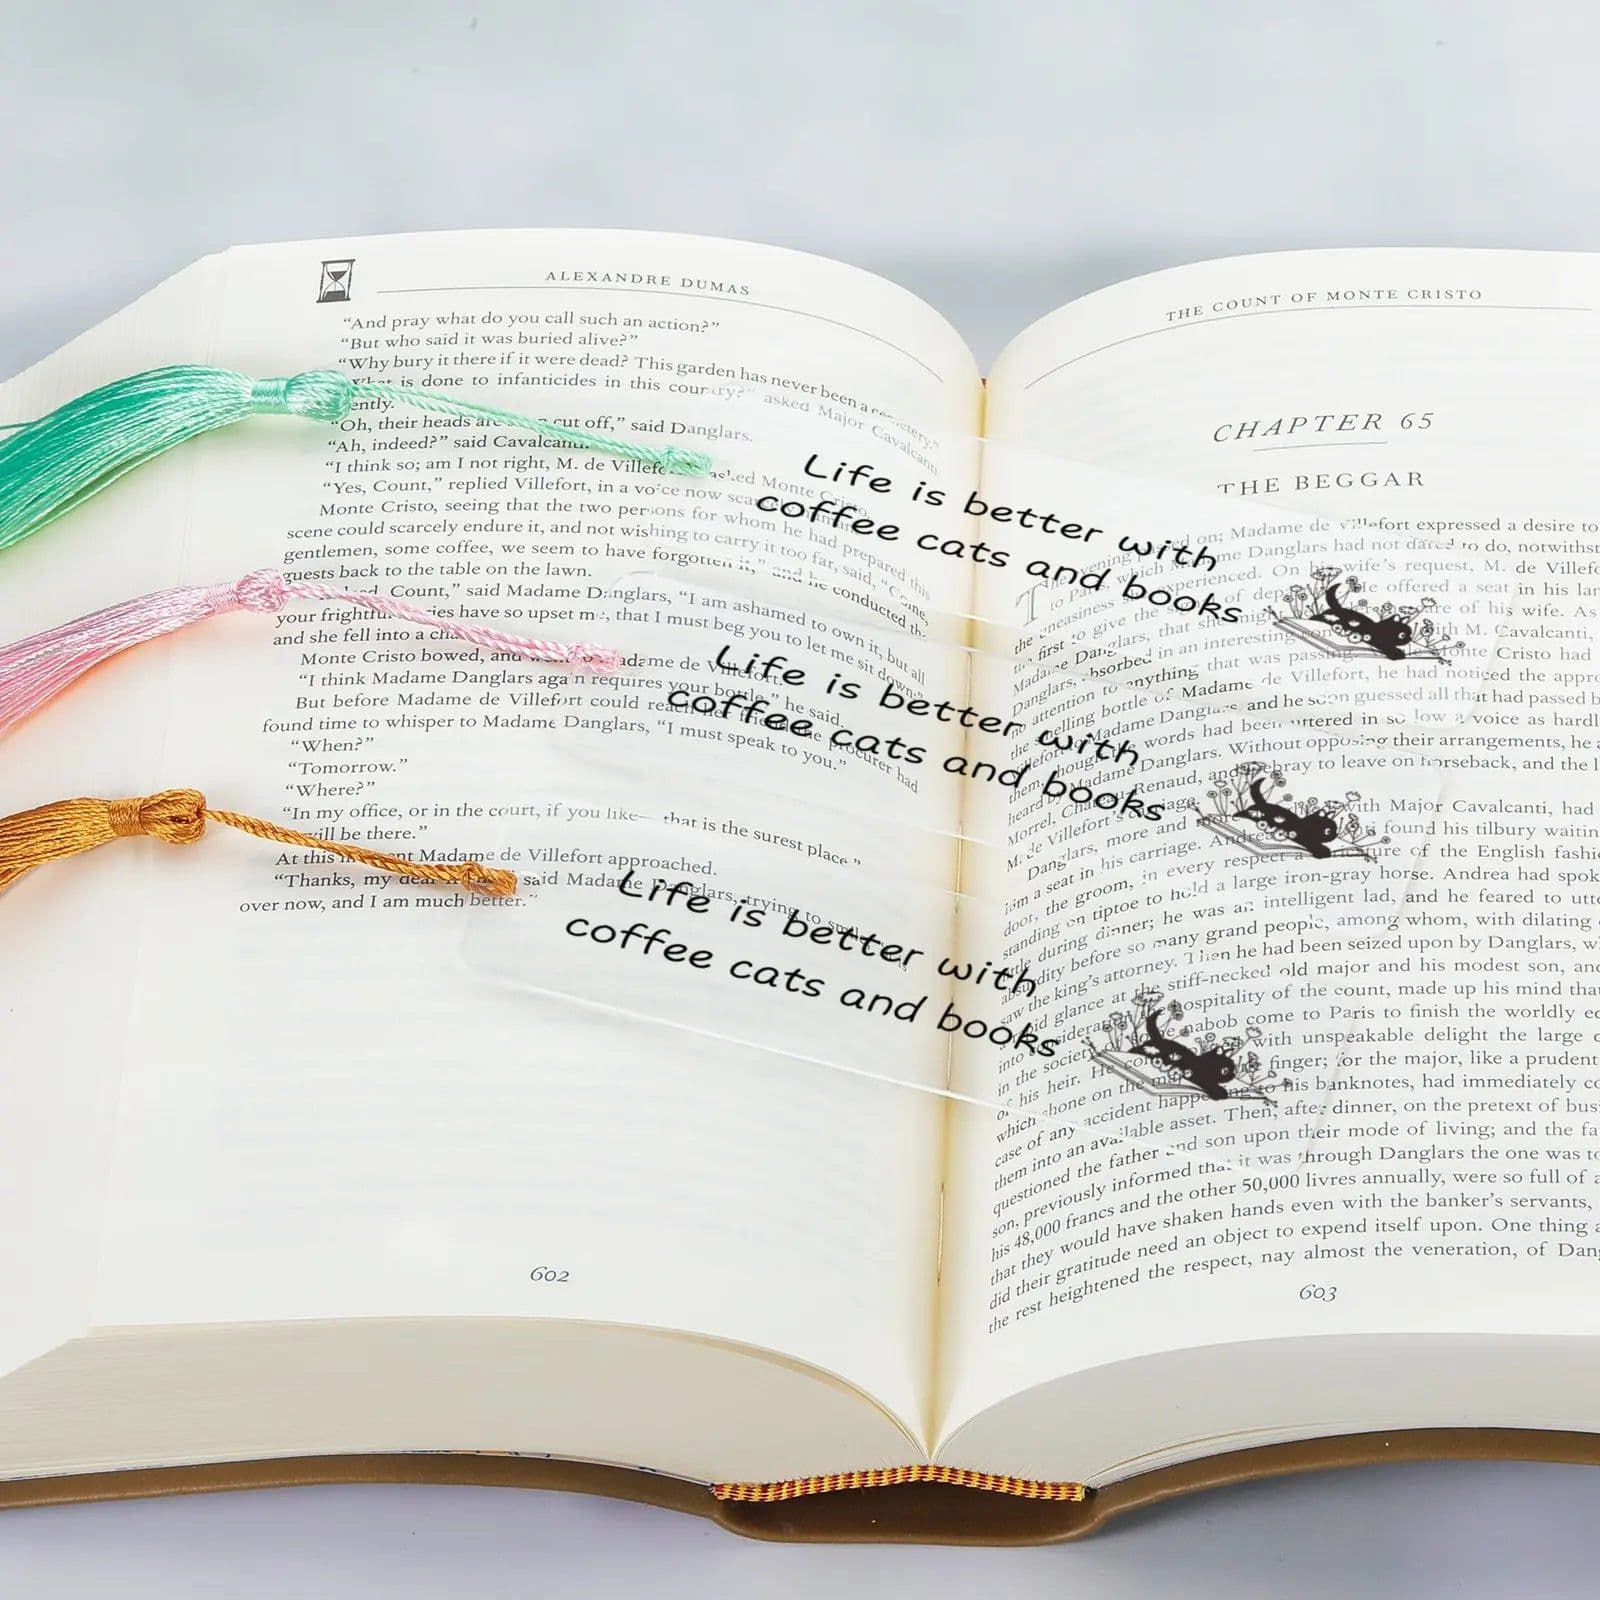 ALEXANDRE DUMAS
"And pray what do you call such an action?"
"But who said it was buried alive?"
"Why bury it there if it were dead? This garden has never been a cemetery."
is done to infanticides in this country?" asked Major Cavalcanti
ently.
"Oh, their heads are cut off," said Danglars.
"Ah, indeed?" said Cavalcanti.
"I think so; am I not right, M. de Villefort asked Monte Cristo.
"Yes, Count," replied Villefort, in a voice now
Monte Cristo, seeing that the two persons for whom he had prepared this
scene could scarcely endure it, and not wishing to carry it too far, said, "Come,
gentlemen, some coffee, we seem to have forgotten it," and he conducted the
guests back to the table on the lawn.
Count," said Madame Danglars, "I am ashamed to own it, but all
your frightful ries have so upset me, that I must beg you to let me sit down;"
and she fell into a
Monte Cristo bowed, and Madame de Villefort.
"I think Madame Danglars again requires your bottle," he said.
But before Madame de Villefort could reach her friend the procurer had
found time to whisper to Madame Danglars, "I must speak to you."
"When?"
"Tomorrow."
"Where?"
"In my office, or in the court, if you like— that is the surest place."
will be there."
At this Madame de Villefort approached.
"Thanks, my dear said Madame Danglars, trying to smile,
over now, and I am much better."
602
Life is better with
coffee cats and books
Life is better with
coffee cats and books
Life is better with
coffee cats and books
THE COUNT OF MONTE CRISTO
CHAPTER 65
THE BEGGAR
on; Madame de Villefort expressed a desire to
to which Madame Danglars had not dared to do, notwithst
the uneasiness experienced. On his wife's request, M. de Villefo
the first to give the offered a seat in his lan
Madame Danglars, that she of his wife. As
Danglars, absorbed in an interesting with M. Cavalcanti,
no attention to anything that was passing. Monte Cristo had
the smelling bottle of Madame de Villefort, he had noticed the appro
to Madame Danglars, and he soon guessed all that had passed b
them, though the words had been uttered in so low a voice as hardl
heard by Madame Danglars. Without opposing their arrangements, he a
Morrel, Château-Renaud, and Debray to leave on horseback, and the l
M. de Villefort's carriage.
Danglars, more and more with Major Cavalcanti, had
him a seat in his carriage. Andrea found his tilbury waitin
door, the groom, in every respect a caricature of the English fashi
standing on tiptoe to hold a large iron-gray horse. Andrea had spok
little during dinner; he was an intelligent lad, and he feared to utte
absurdity before so many grand people, among whom, with dilating
saw the king's attorney. Then he had been seized upon by Danglars, w
glance at the stiff-necked old major and his modest son, and
into consideration hospitality of the count, made up his mind that
in the society of some nabob come to Paris to finish the worldly e
of his heir. He with unspeakable delight the large
which shone on the finger; for the major, like a prudent
case of any accident happening to his banknotes, had immediately co
them into an available asset. Then, after dinner, on the pretext of bus
questioned the father and son upon their mode of living; and the fa
son, previously informed that it was through Danglars the one was to
his 48,000 francs and the other 50,000 livres annually, were so full of a
that they would have shaken hands even with the banker's servants,
did their gratitude need an object to expend itself upon. One thing a
the rest heightened the respect, nay almost the veneration, of Dan
603